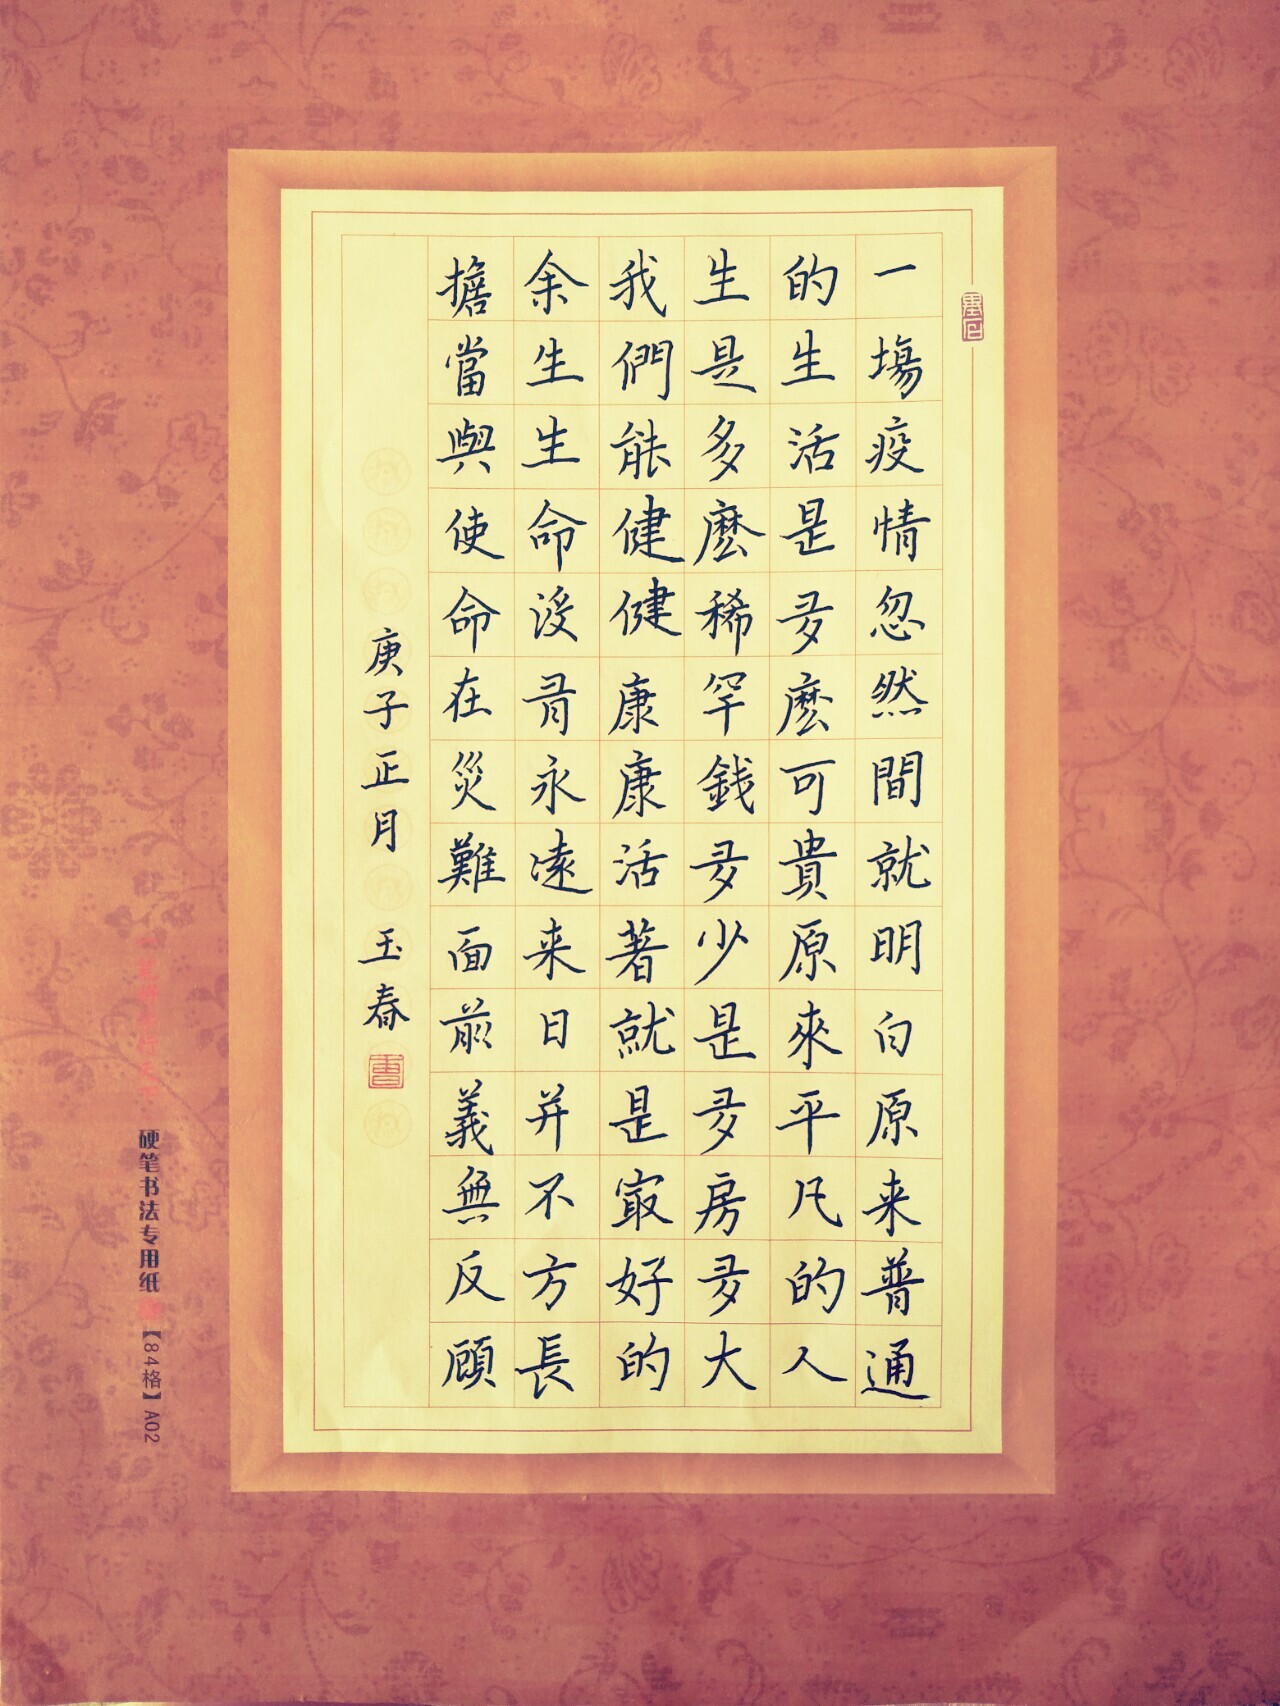 一場疫情忽然間就明白原来普通
的生活是多麼可貴原來平凡的人
生是多麼稀罕錢多少是多房多大
我們能健健康康活著就是最好的
余生生命没有永遠来日并不方長
擔當與使命在災難面前義無反顧
庚子正月 玉春
書
硬笔书法专用纸
【84格】A02